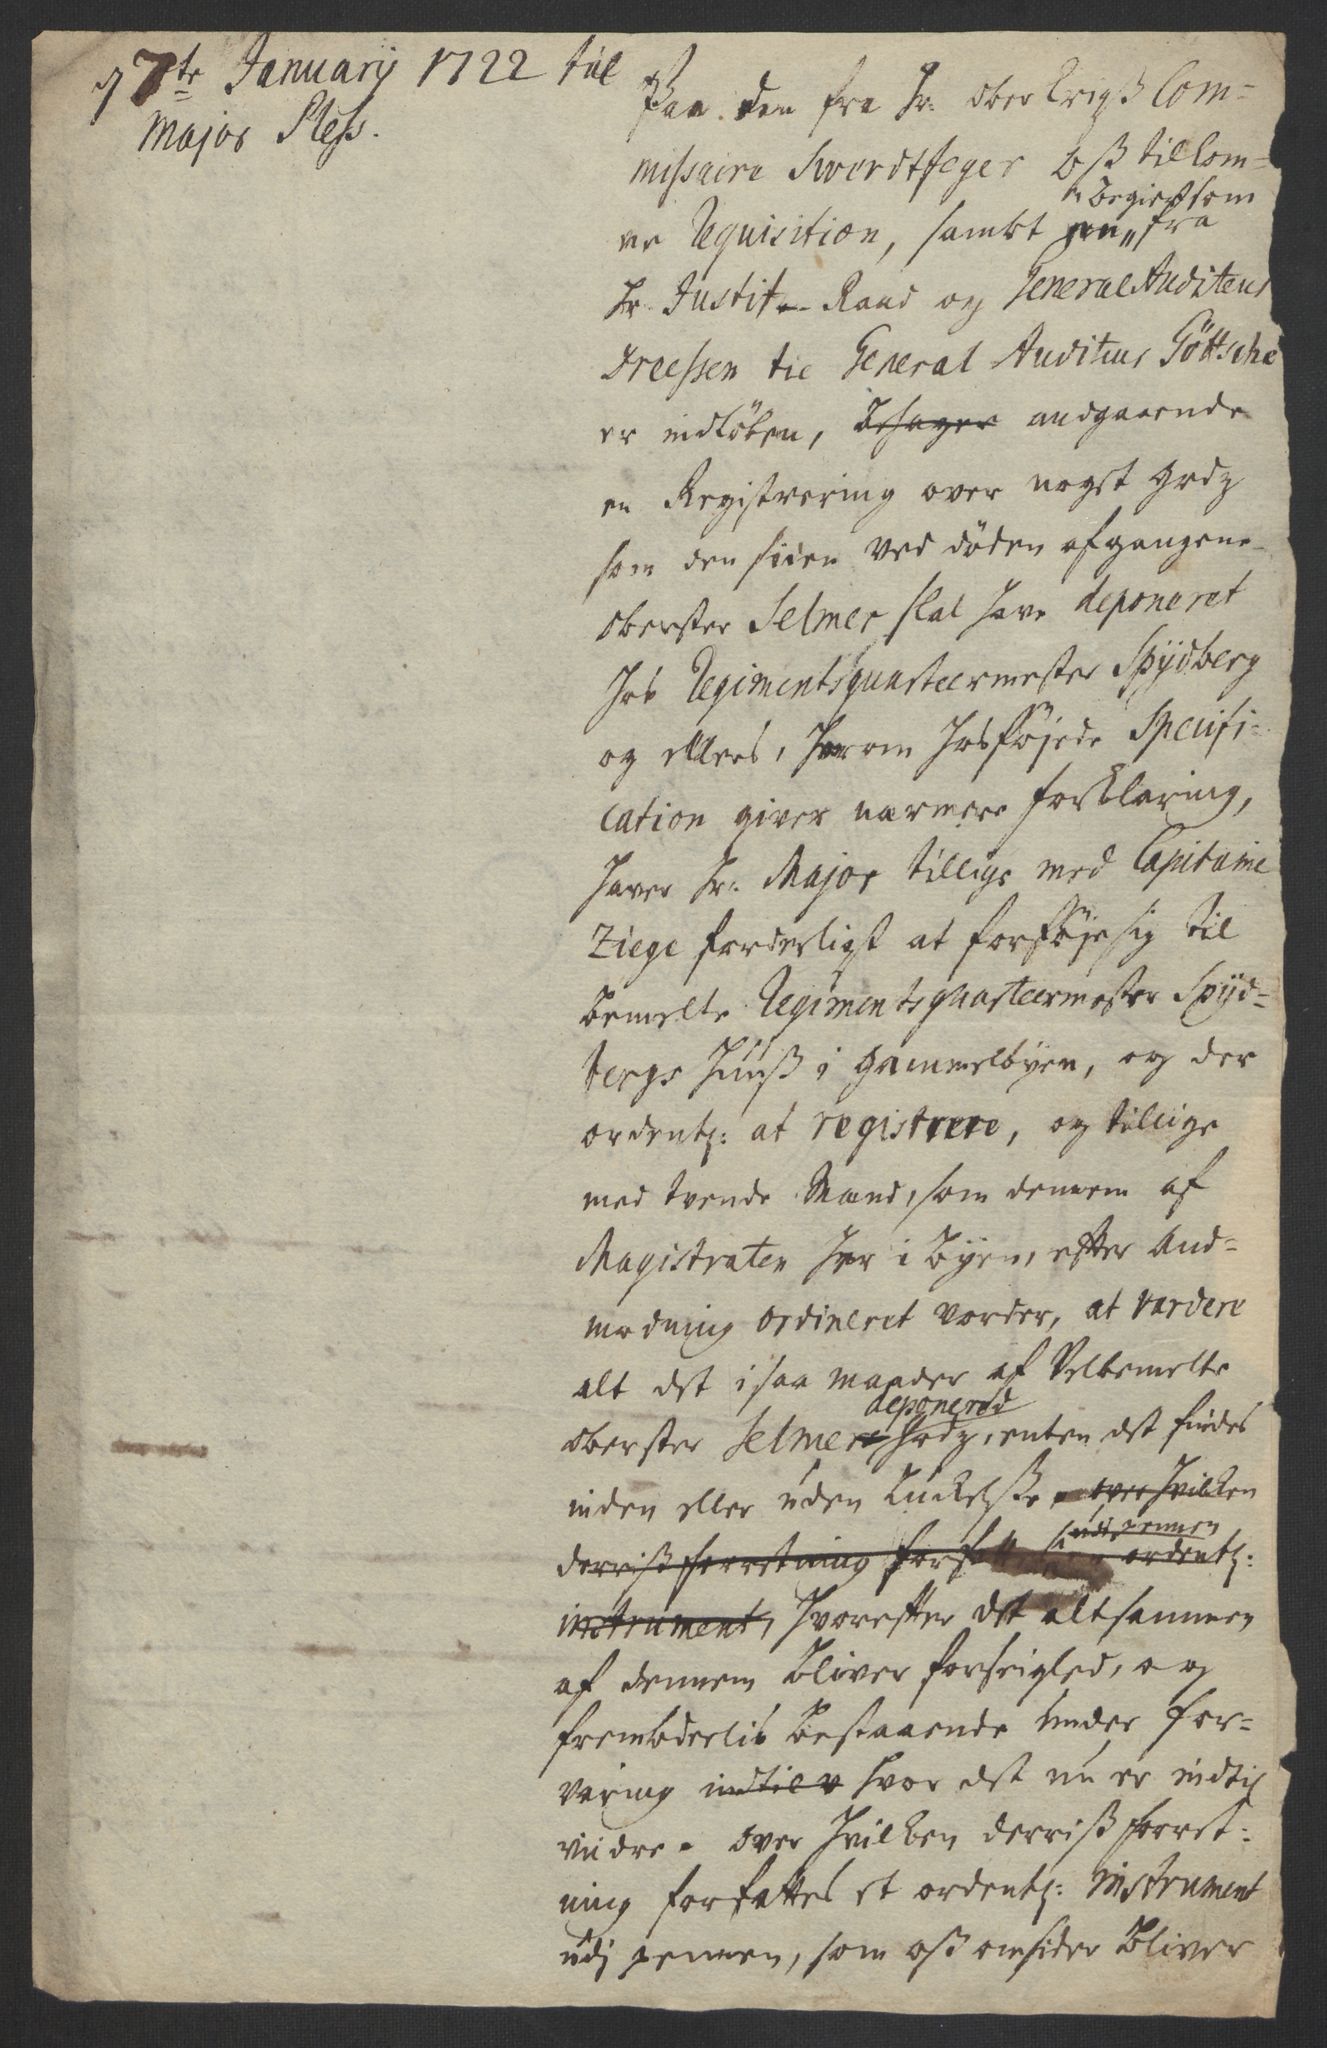 d 7de Januarij 1722 til
Major Pless.
Paa den fra Hr. Ober Krigß Com=
missaire Swerdtfeger oß tilkom=
ne Requisition, samt en begiersom
fra
Hr. Justitz Raad og General Auditeur
Dreessen til General Auditeur Göttsche
er indløben, besager andgaaende
en Registrering over noget godz
som den siden ved døden afgangene
Oberster Selmer skal have deponeret
hos Regimentsquarteermester Spydberg
og ellers, herom hosføjede Specifi=
cation giver nærmere forklaring,
haver Hr. Major tillige med Capitaine
Ziege forderligst at forføje sig til
bemelte Regimentsquarteermester Spyd=
bergs Huuß i Gammelbyen, og der
ordentl: at registrere, og tillige
med tvende Mænd, som dennem af
Magistraten her i byen, efter And=
modning ordineret vorder, at vardere
alt det i saa maader af Velbemelte
deponered
Oberster Selmer godz, enten det findes
inden eller uden Luckelse, over hvilken
udi pennen
derriß forretning forfattes ordentl:
instrument, hvorefter det altsammen
af dennem bliver forseigled, og
frembdelis bestaaende under for=
varing indtil hvor det nu er indtil
viidre. Over hvilken derriß forret=
ning forfattes et ordentl: instrument
udj pennen, som oß omsider bliver